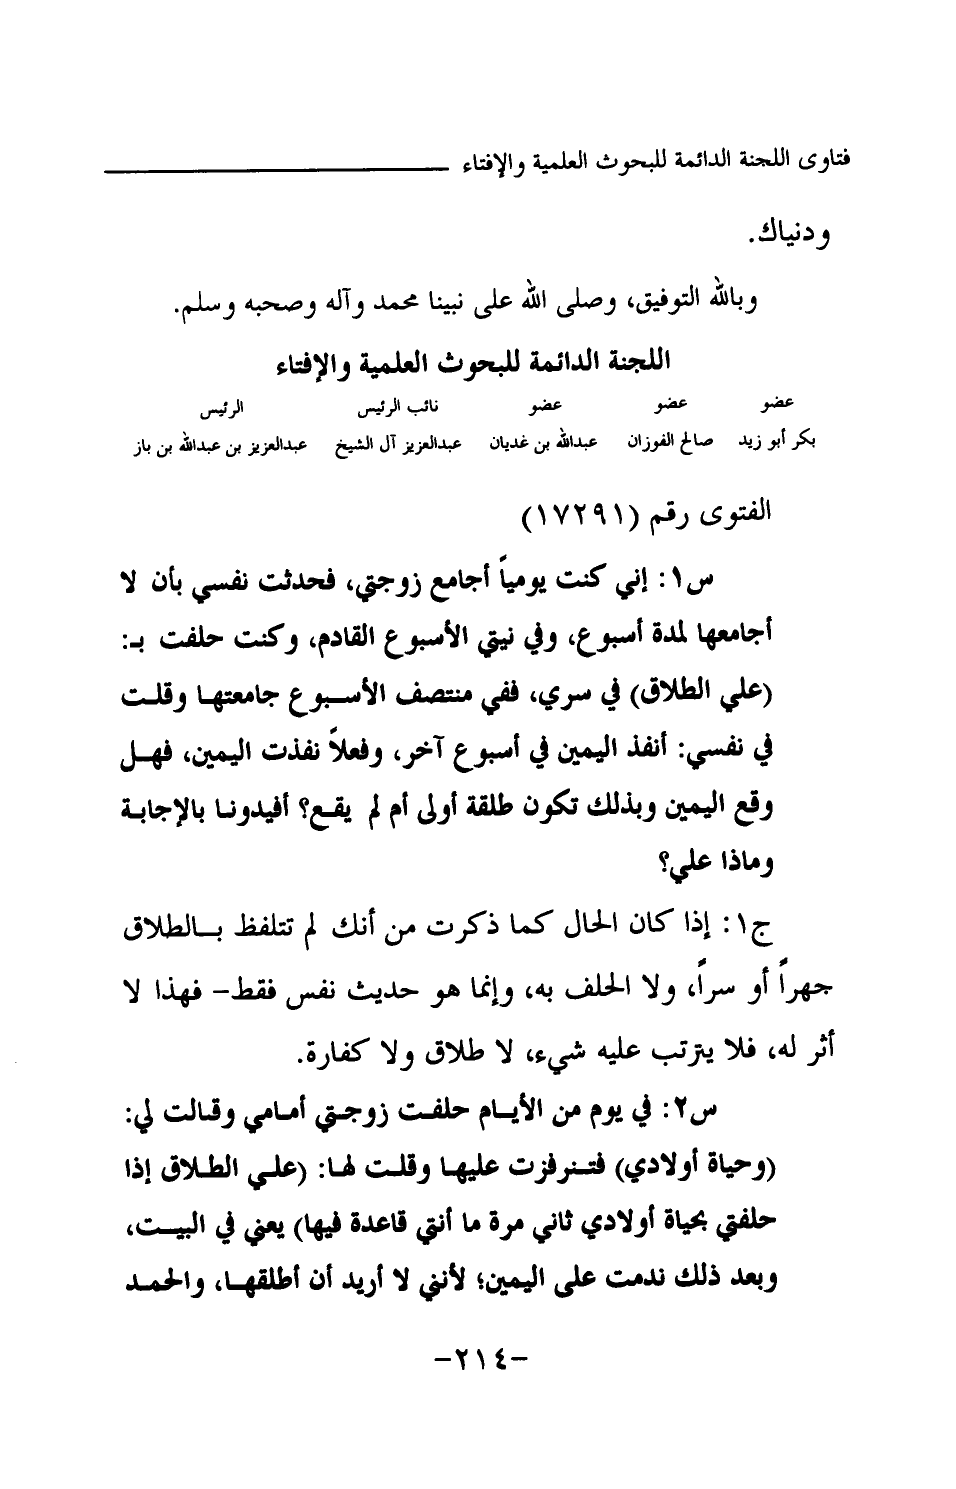 فتاوى اللجنة الدائمة للبحوث العلمية والإفتاء
ودنياك.
وبالله التوفيق، وصلى الله على نبينا محمد وآله وصحبه وسلم.
اللجنة الدائمة للبحوث العلمية والإفتاء
عضو عضو عضو نائب الرئيس الرئيس
بكر أبو زيد صالح الفوزان عبدالله بن غديان عبدالعزيز آل الشيخ عبدالعزيز بن عبدالله بن باز
الفتوى رقم (١٧٢٩١)
س١: إني كنت يومياً أجامع زوجتي، فحدثت نفسي بأن لا
أجامعها لمدة أسبوع، وفي نيتي الأسبوع القادم، وكنت حلفت بـ:
(علي الطلاق) في سري، ففي منتصف الأسبوع جامعتها وقلت
في نفسي: أنفذ اليمين في أسبوع آخر، وفعلاً نفذت اليمين، فهل
وقع اليمين وبذلك تكون طلقة أولى أم لم يقع؟ أفيدونا بالإجابة
وماذا علي؟
ج١: إذا كان الحال كما ذكرت من أنك لم تتلفظ بالطلاق
جهراً أو سراً، ولا الحلف به، وإنما هو حديث نفس فقط- فهذا لا
أثر له، فلا يترتب عليه شيء، لا طلاق ولا كفارة.
س٢: في يوم من الأيام حلفت زوجتي أمامي وقالت لي:
(وحياة أولادي) فتنرفزت عليها وقلت لها: (علي الطلاق إذا
حلفتي بحياة أولادي ثاني مرة ما أنتي قاعدة فيها) يعني في البيت،
وبعد ذلك ندمت على اليمين؛ لأنني لا أريد أن أطلقها، والحمد
-٢١٤-